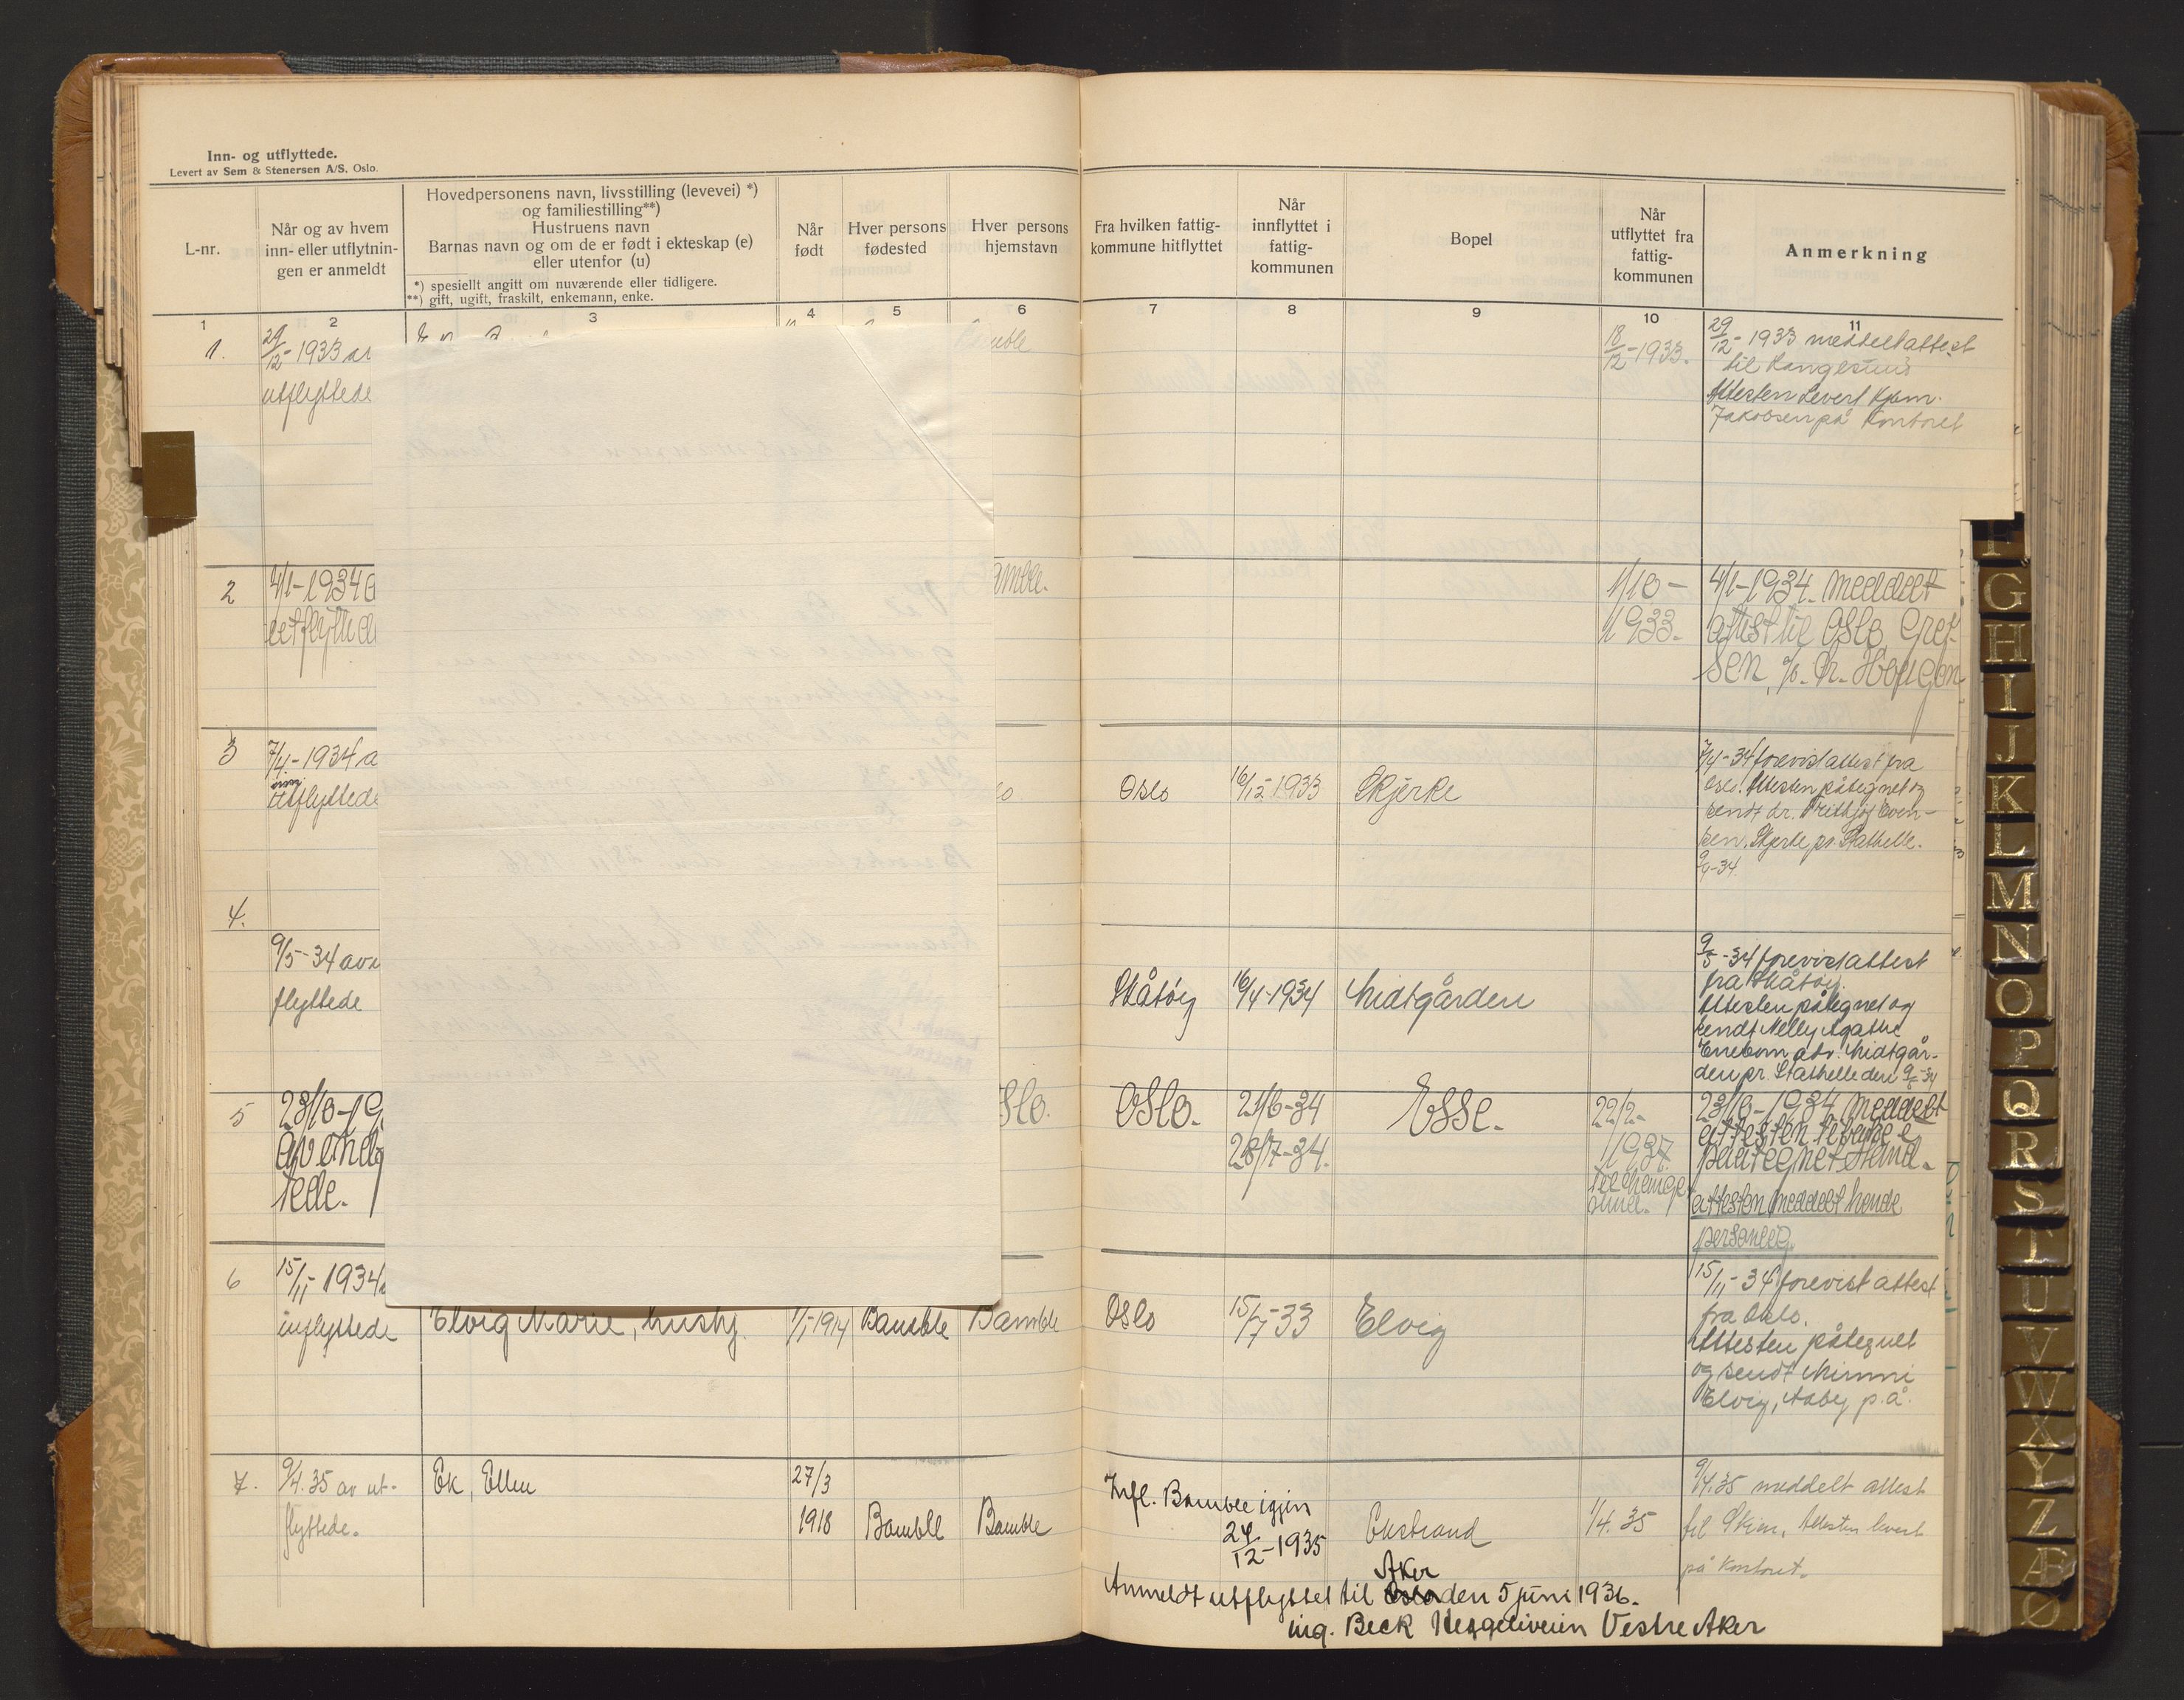 Inn- og utflyttede.
Levert av Sem & Stenersen A/S, Oslo.
L-nr.
Når og av hvem
inn- eller utflytnin-
gen er anmeldt
Hovedpersonens navn, livsstilling (levevei) *)
og familiestilling**)
Hustruens navn
Barnas navn og om de er født i ekteskap (e)
eller utenfor (u)
*) spesiellt angitt om nuværende eller tidligere.
**) gift, ugift, fraskilt, enkemann, enke.
Når
født
Hver persons
fødested
Hver persons
hjemstavn
Fra hvilken fattig-
kommune hitflyttet
Når
innflyttet i
fattig-
kommunen
Bopel
Når
utflyttet fra
fattig-
kommunen
Anmerkning
1 2 3 4 5 6 7 8 9 10 11
1.
29/12-1933 av
utflyttede
18/12-1933.
29/12-1933 meddelt attest
til
Attesten levert
Jakobsen på kontoret
2
4/1-1934
utflytted
amble.
1/10-
1933.
4/1-1934. meddelt
attest til Oslo Gref-
sen,
3
7/4-1934 a
inn
utflyttede
lo
Oslo
16/12-1933
Skjerke
7/4-34 forevist attest fra
Oslo. Attesten påtegnet og
sendt hr. Fridtjof Even-
sen, Skjerke pr. Stathelle.
9/4-34.
4.
9/5-34 av
flyttede
Skåtøy
16/4-1934
Midtgården
9/5-34 forevist attest
fra Skåtøy.
Attesten påtegnet og
sendt Nelly Agathe
adr. Midtgår-
den pr. Stathelle den 9/5-34
5
23/10-19
av
tede.
Oslo.
Oslo.
21/6-34
28/7-34.
Esse.
22/2-
1937.
23/10-1934 meddelt
attesten tilbake i
paategnet stand.
attesten meddelt hende
personlig.
6
15/11-1934
innflyttede
Elvig Marie, hushj.
1/1-1914
Bamble
Bamble
Oslo
15/7-33
Elvig
15/11-34 forevist attest
fra Oslo.
Attesten påtegnet
og sendt Mimmi
Elvig, Aaby p.å.
7.
9/4.35 av ut-
flyttede.
Ek, Ellen
27/3
1918
Bamble
Bamble
Infl. Bamble igjen
24/12-1935
Ekstrand
1/4.35
9/4.35 meddelt attest
til Skien, Attesten levert
på kontoret.
Aker
Anmeldt utflyttet til Oslo den 5 juni 1936.
ing. Beck Heggeliveien Vestre Aker
G
H
I
J
K
L
M
N
O
P
Q
R
S
T
U
V
W
X
Y
Z
Æ
Ø